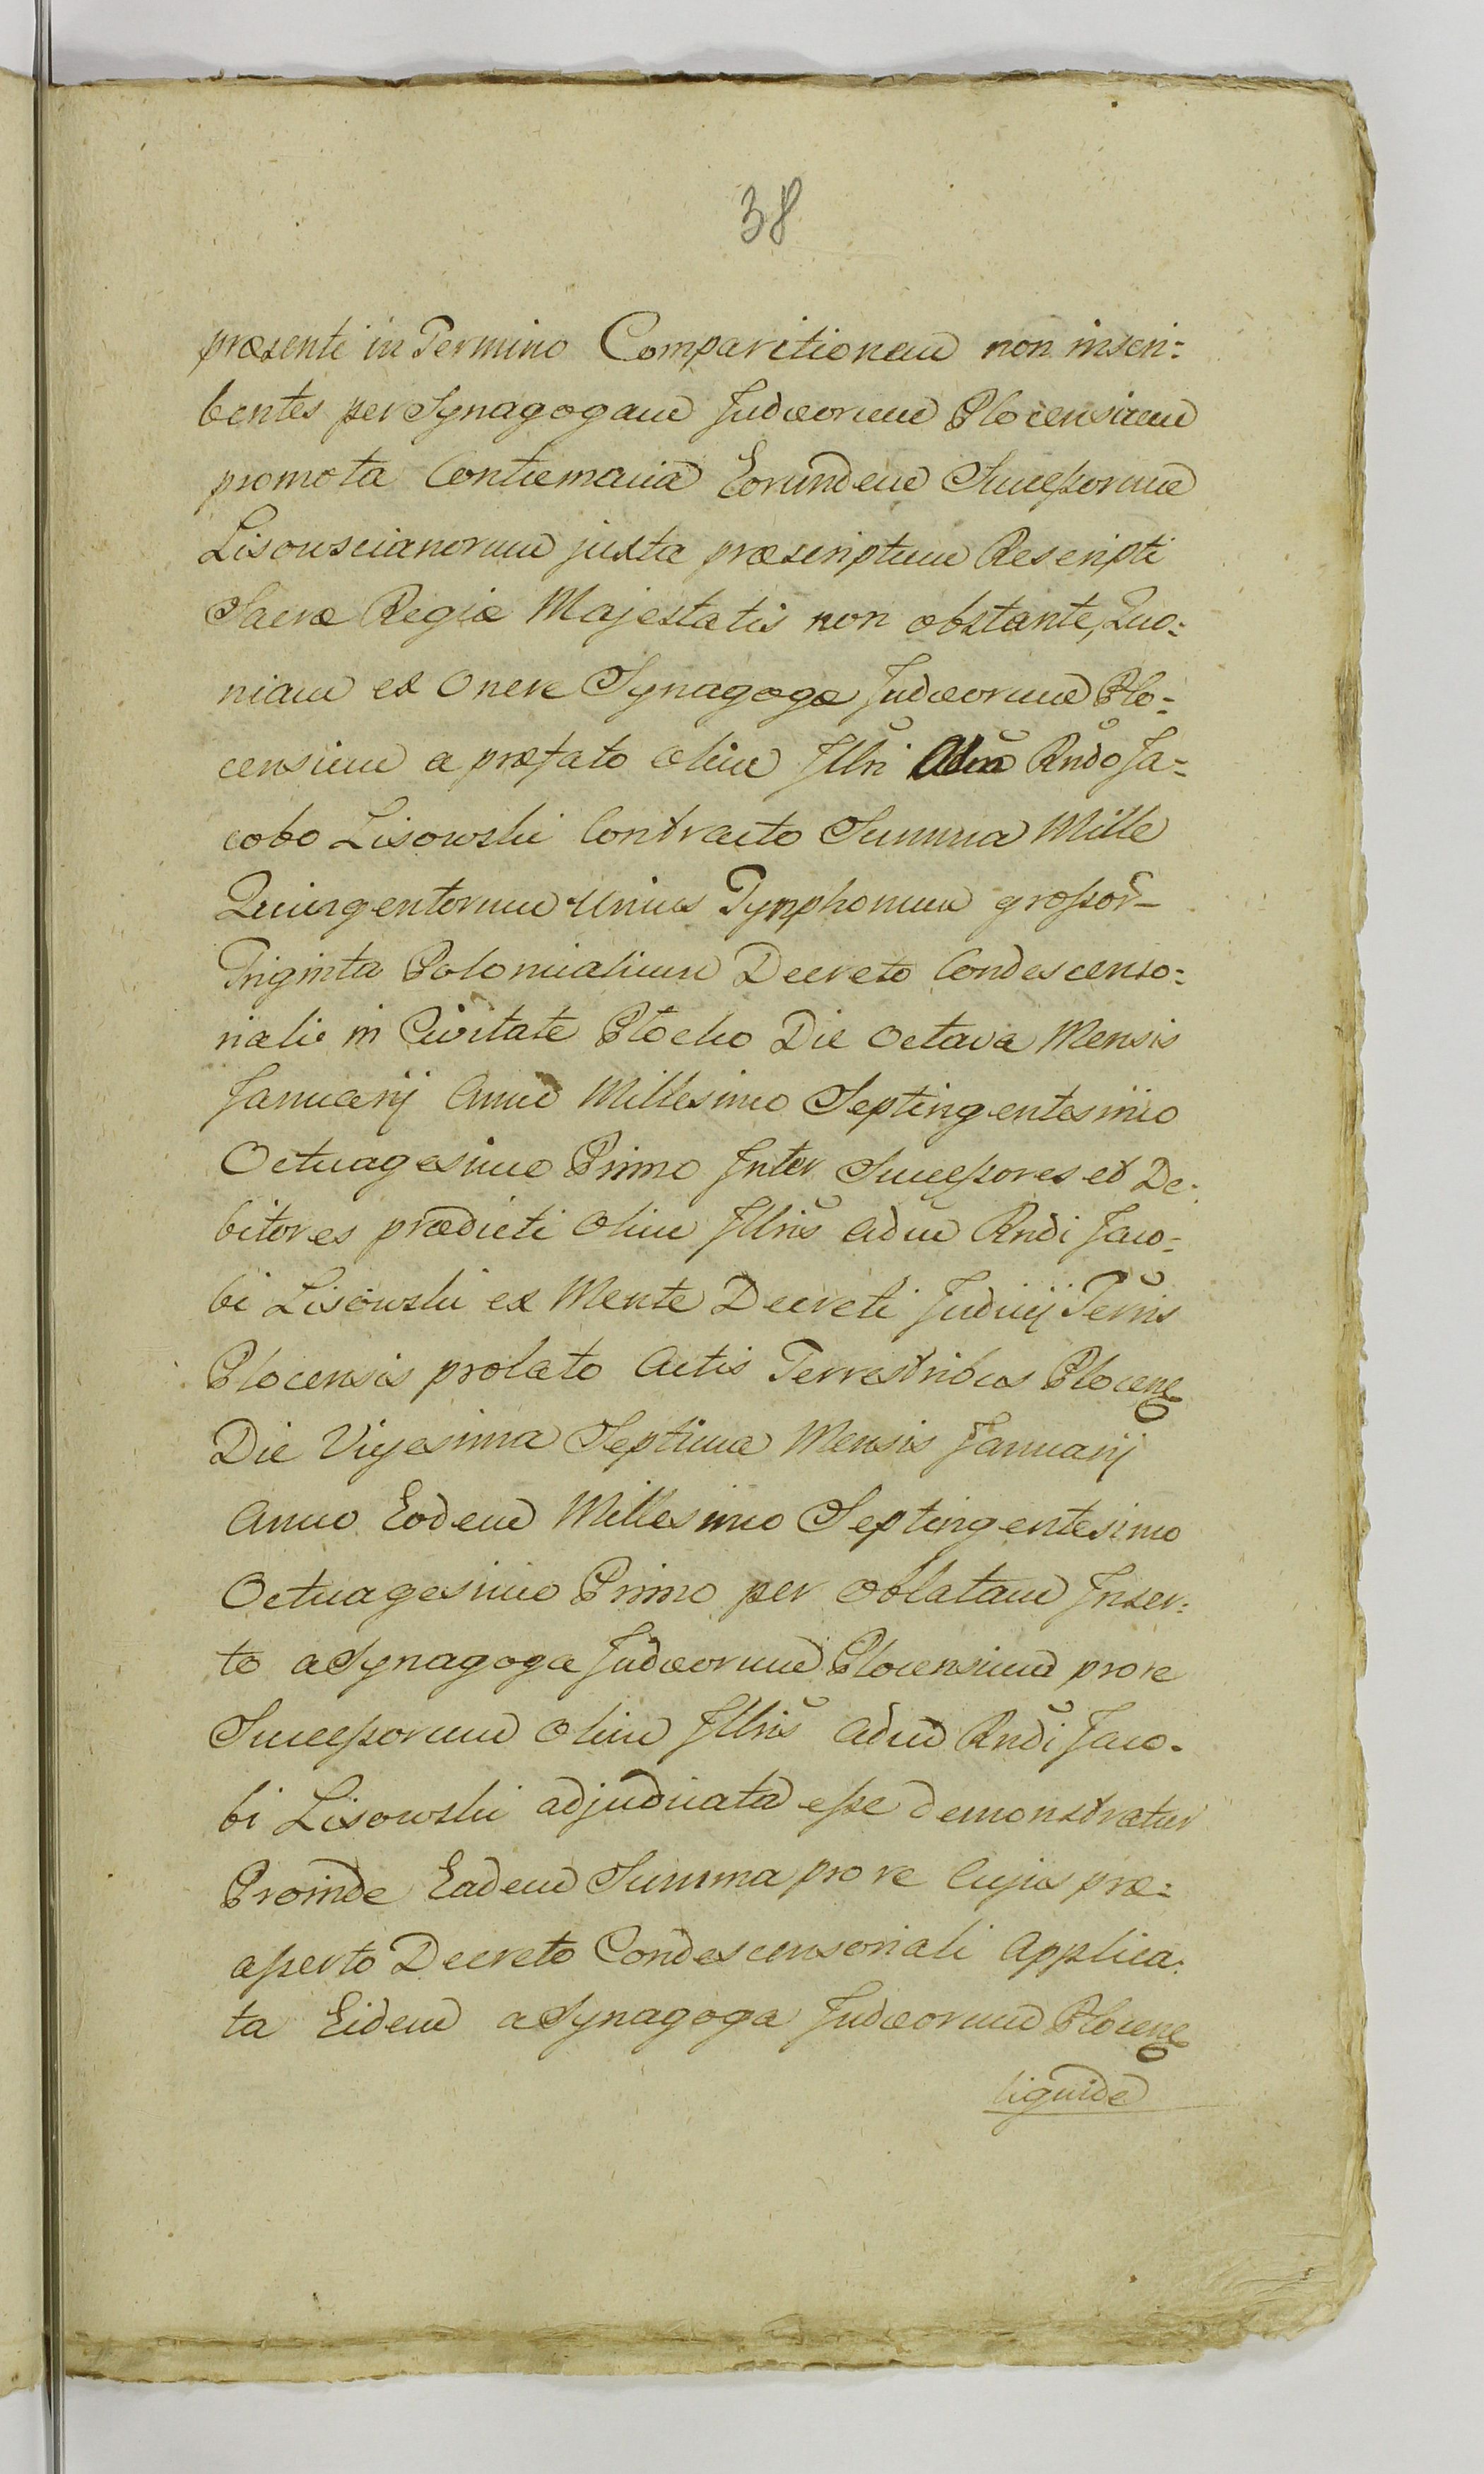 38
præsenti in Termino Comparitionem non inscri=
bentes per Synagogam Judæorum Plocensium
promota Contumacia Eorundem Successorum
Lisowscianorum juxta præscriptum Rescripti
Sacræ Regiæ Majestatis non obstante, Quo=
niam ex Onere Synagogæ Judæorum Plo=
censium a præfato olim Illri Adm Rndo Ja=
cobo Lisowski Contracto Summa Mille
Quingentorum Unius Tynphonum grossor
Triginta Polonicalium Decreto Condescenso=
riali in Civitate Płocko Die Octava Mensis
Januarij Anno Millesimo Septingentesimo
Octuagesimo Primo Inter Successores et De=
bitores prædicti Olim Illris Adm Rndi Jaco=
bi Lisowski ex Mente Decreti Judicij Terris
Plocensis prolato Actis Terrestribus Plocen
Die Vigesima Septima Mensis Januarij
Anno Eodem Millesimo Septingentesimo
Octuagesimo Primo per Oblatam Inser=
to a Synagoga Judæorum Plocensium pro re
Successorum Olim Illris Adm Rndi Jaco=
bi Lisowski adjudicata esse demonstratur
Proinde Eadem Summa pro re Cujus præ=
asserto Decreto Condescensoriali Applica=
ta Eidem a Synagoga Judæorum Plocen
liquide